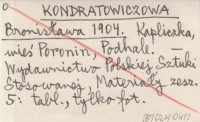 KONDRATOWICZOWA
Bronisława 1904. Kapliczka,
wieś Poronin, Podhale. –
Wydawnictwo Polskiej Sztuki
Stosowanej, Materiały zesz.
5: tabl., tylko fot.